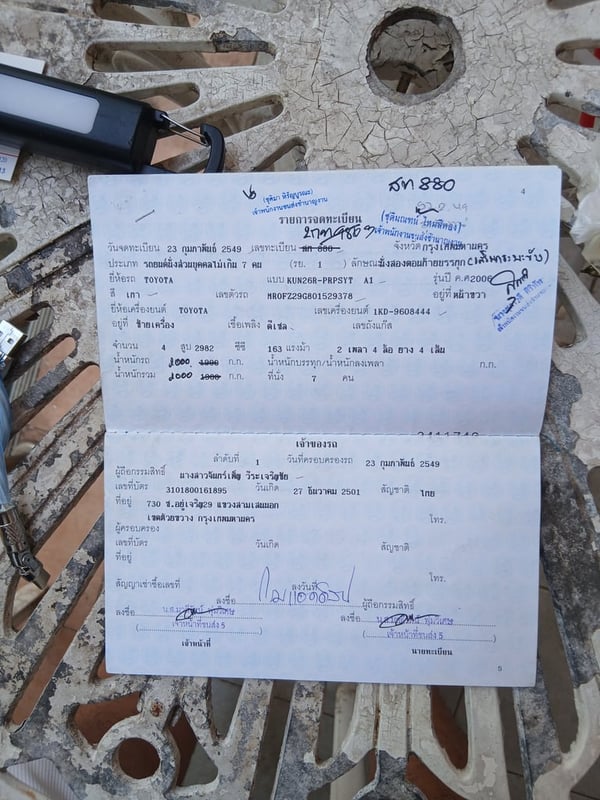 สท 880
4
(ชุติมา หิรัญบูรณะ)
เจ้าพนักงานขนส่งชำนาญงาน
รายการจดทะเบียน
เจ้าพนักงานขนส่งชำนาญงาน
วันจดทะเบียน 23 กุมภาพันธ์ 2549 เลขทะเบียน สท 880 จังหวัด กรุงเทพมหานคร
ประเภท รถยนต์นั่งส่วนบุคคลไม่เกิน 7 คน (รย. 1 ) ลักษณะ นั่งสองตอนท้ายบรรทุก
ยี่ห้อรถ TOYOTA แบบ KUN26R-PRPSYT A1 รุ่นปี ค.ศ 2006
สี เทา เลขตัวรถ MROFZ29G801529378 อยู่ที่ หน้าขวา
ยี่ห้อเครื่องยนต์ TOYOTA เลขเครื่องยนต์ 1KD-9608444
อยู่ที่ ซ้ายเครื่อง เชื้อเพลิง ดีเซล เลขถังแก๊ส
จำนวน 4 สูบ 2982 ซีซี 163 แรงม้า 2 เพลา 4 ล้อ ยาง 4 เส้น
น้ำหนักรถ ก.ก. น้ำหนักบรรทุก/น้ำหนักลงเพลา ก.ก.
น้ำหนักรวม ก.ก. ที่นั่ง 7 คน
เจ้าของรถ
ลำดับที่ 1 วันที่ครอบครองรถ 23 กุมภาพันธ์ 2549
ผู้ถือกรรมสิทธิ์ นางสาวจันทร์เพ็ญ วีระเจริญชัย
เลขที่บัตร 3101800161895 วันเกิด 27 ธันวาคม 2501 สัญชาติ ไทย
ที่อยู่ 730 ซ.อยู่เจริญ29 แขวงสามเสนนอก
เขตห้วยขวาง กรุงเทพมหานคร โทร.
ผู้ครอบครอง
เลขที่บัตร วันเกิด สัญชาติ
ที่อยู่
สัญญาเช่าซื้อเลขที่ ลงวันที่ โทร.
ลงชื่อ ผู้ถือกรรมสิทธิ์
ลงชื่อ ลงชื่อ
เจ้าหน้าที่ขนส่ง 5 เจ้าหน้าที่ขนส่ง 5
เจ้าหน้าที่ นายทะเบียน
5